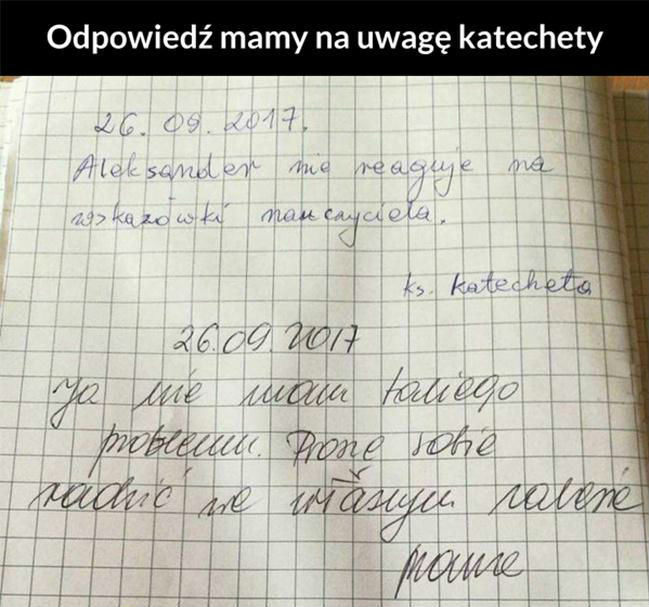 Odpowiedź mamy na uwagę katechety
26. 09. 2017.
Aleksander nie reaguje na
wskazówki nauczyciela.
ks. katecheta
26.09.2017
Ja nie mam takiego
problemu. Proszę sobie
radzić we własnym zakresie